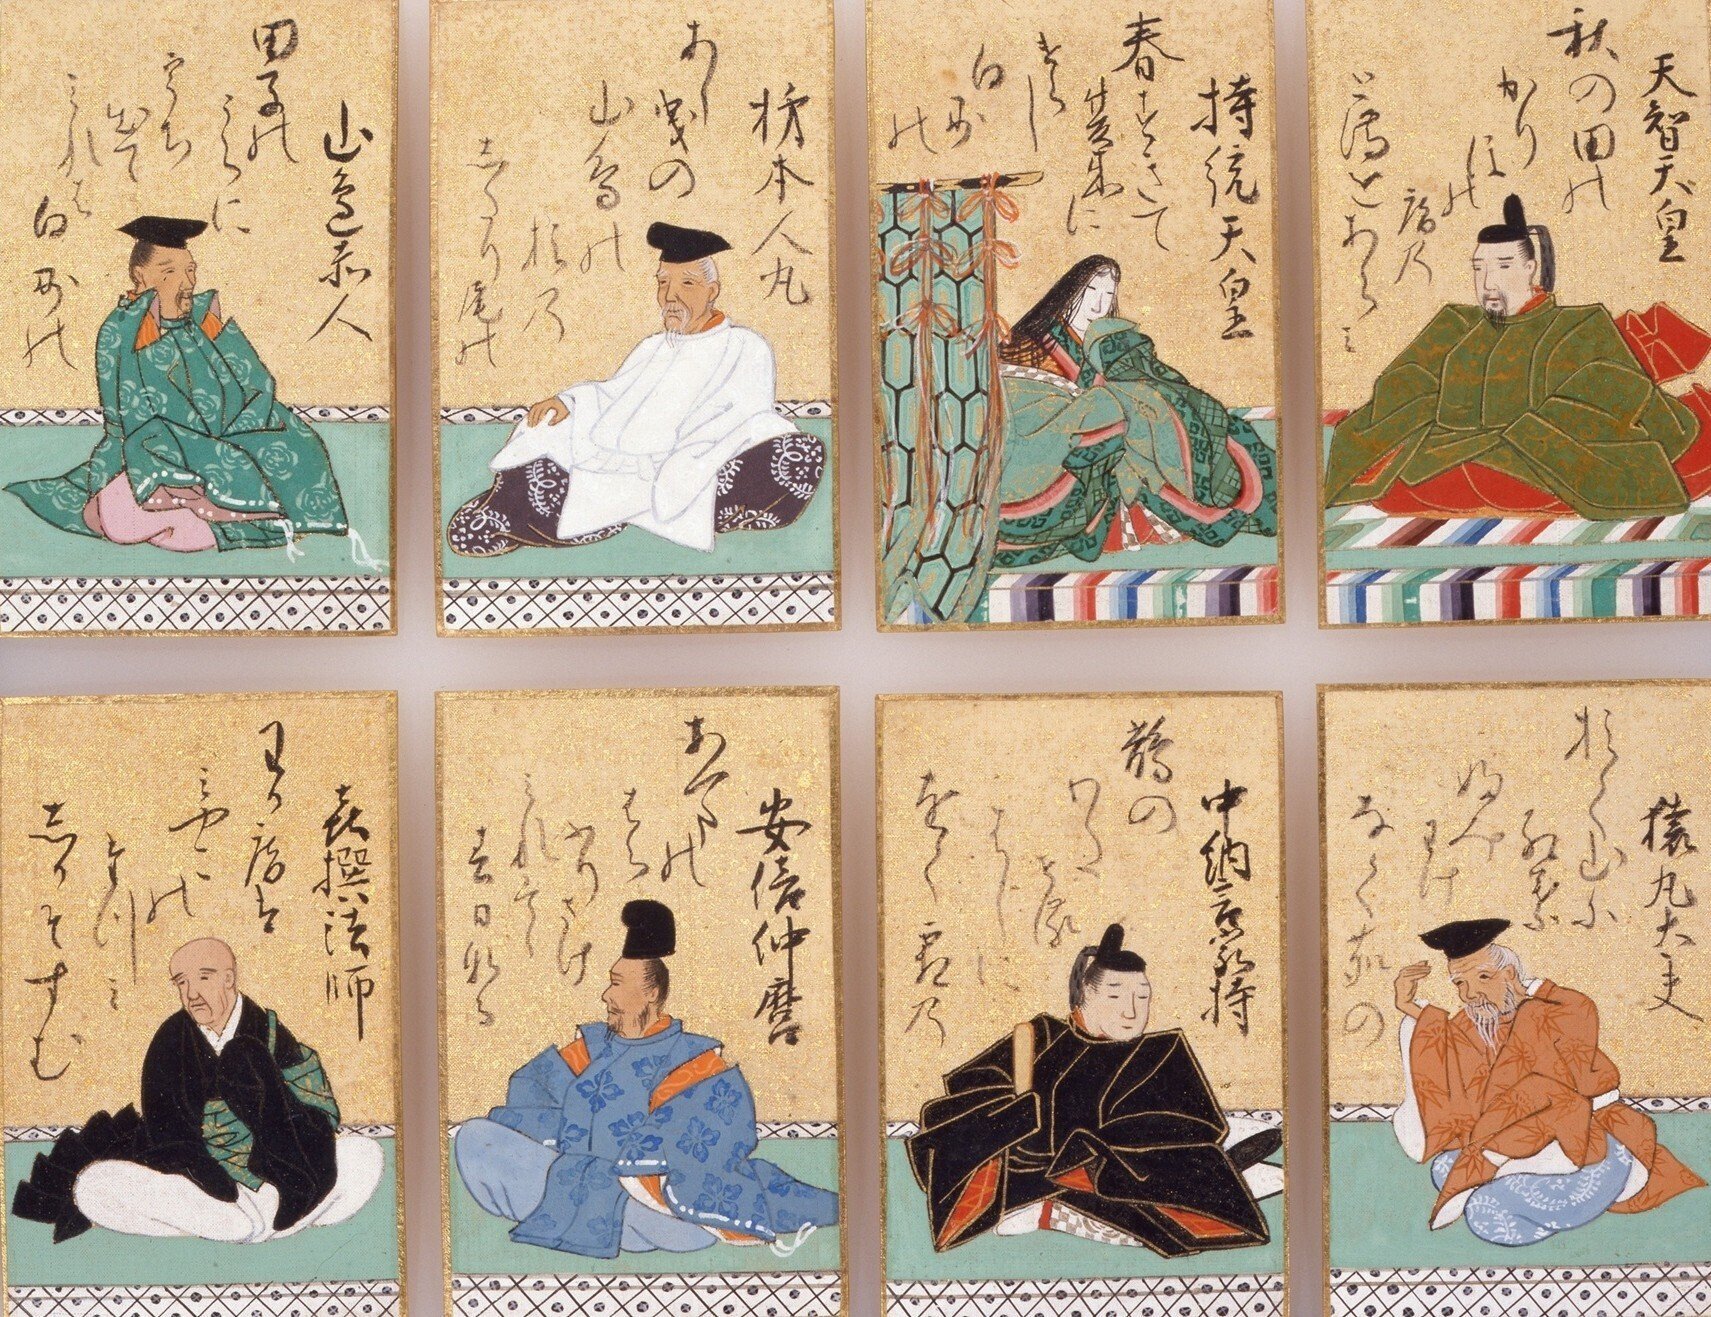 天智天皇
秋の田の
かり
ほの
庵の
とまをあらみ
持統天皇
春すきて
夏来に
けらし
白妙
の
柿本人丸
あし
曳の
山鳥の
おの
したり尾の
山邊赤人
田子の
うらに
うち
出て
みれは
白妙の
猿丸大夫
おく山に
紅葉
ふみ
わけ
なく鹿の
中納言家持
鵲の
わた
せる
はしに
をく霜の
安倍仲麿
あまの
はら
ふりさけ
みれは
春日なる
喜撰法師
わか庵は
みやこの
たつみ
しかそすむ